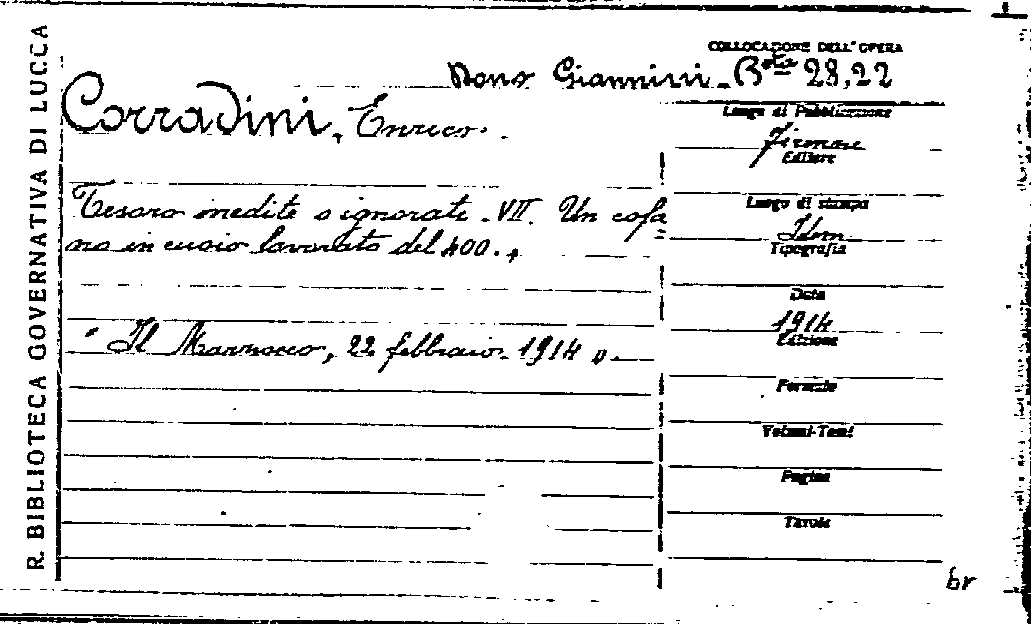 R. BIBLIOTECA GOVERNATIVA DI LUCCA
COLLOCAZIONE DELL' OPERA
Dono Giannini - B.sta 28,22
Corradini, Enrico.
Luogo di Pubblicazione
Firenze
Editore
Tesoro inedite o ignorate. VII. Un cofa
no in cuoio lavorato del 400. +
Luogo di stampa
Idem
Tipografia
Data
1914
Edizione
" Il Marzocco, 22 febbraio 1914 ».
Formato
Volumi-Tomi
Pagine
Tavole
br